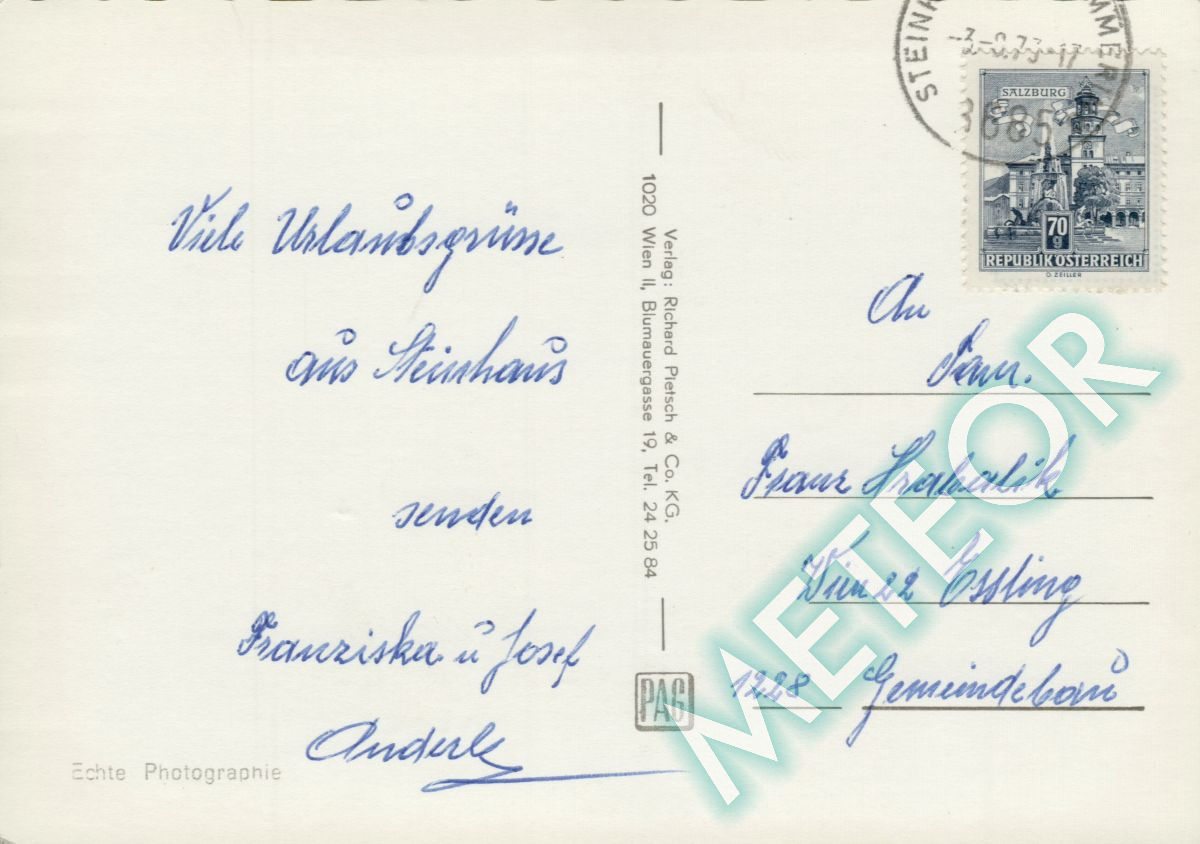 Viele Urlaubsgrüsse
aus Steinhaus
senden
Franziska u Josef
Anderle
Echte Photographie
Verlag: Richard Pietsch & Co. KG.
1020 Wien II, Blumauergasse 19, Tel. 24 25 84
PAG
73-17
SALZBURG
70
g
REPUBLIK ÖSTERREICH
O. ZEILLER
An
Fam.
Franz Hrabalik
Wien 22 Essling
1228 Gemeindebau
METEOR